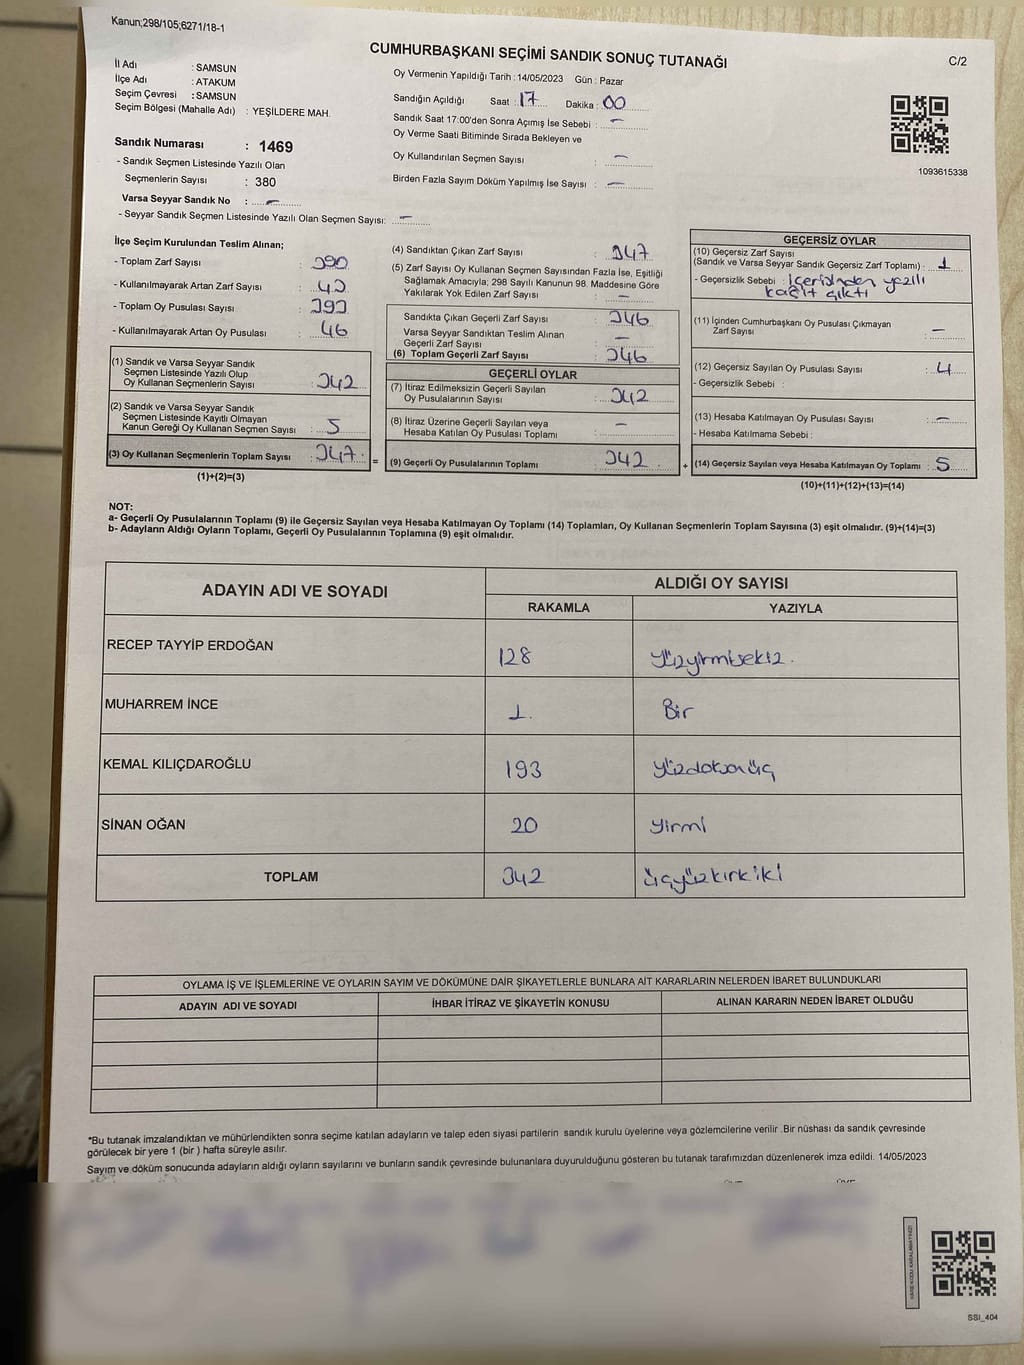 Kanun;298/105;6271/18-1
CUMHURBAŞKANI SEÇİMİ SANDIK SONUÇ TUTANAĞI
C/2
İl Adı : SAMSUN
İlçe Adı : ATAKUM
Seçim Çevresi : SAMSUN
Seçim Bölgesi (Mahalle Adı) : YEŞİLDERE MAH.
Sandık Numarası : 1469
- Sandık Seçmen Listesinde Yazılı Olan
Seçmenlerin Sayısı : 380
Varsa Seyyar Sandık No : —
- Seyyar Sandık Seçmen Listesinde Yazılı Olan Seçmen Sayısı: —
Oy Vermenin Yapıldığı Tarih : 14/05/2023 Gün : Pazar
Sandığın Açıldığı Saat : 17 Dakika : 00
Sandık Saat 17:00'den Sonra Açımış İse Sebebi : —
Oy Verme Saati Bitiminde Sırada Bekleyen ve
Oy Kullandırılan Seçmen Sayısı : —
Birden Fazla Sayım Döküm Yapılmış İse Sayısı : —
1093615338
İlçe Seçim Kurulundan Teslim Alınan;
- Toplam Zarf Sayısı : 390
- Kullanılmayarak Artan Zarf Sayısı : 43
- Toplam Oy Pusulası Sayısı : 393
- Kullanılmayarak Artan Oy Pusulası : 46
(1) Sandık ve Varsa Seyyar Sandık
Seçmen Listesinde Yazılı Olup
Oy Kullanan Seçmenlerin Sayısı : 342
(2) Sandık ve Varsa Seyyar Sandık
Seçmen Listesinde Kayıtlı Olmayan
Kanun Gereği Oy Kullanan Seçmen Sayısı : 5
(3) Oy Kullanan Seçmenlerin Toplam Sayısı : 347
(1)+(2)=(3)
=
(4) Sandıktan Çıkan Zarf Sayısı : 347
(5) Zarf Sayısı Oy Kullanan Seçmen Sayısından Fazla İse, Eşitliği
Sağlamak Amacıyla; 298 Sayılı Kanunun 98. Maddesine Göre
Yakılarak Yok Edilen Zarf Sayısı : —
Sandıkta Çıkan Geçerli Zarf Sayısı : 346
Varsa Seyyar Sandıktan Teslim Alınan
Geçerli Zarf Sayısı : —
(6) Toplam Geçerli Zarf Sayısı : 346
GEÇERLİ OYLAR
(7) İtiraz Edilmeksizin Geçerli Sayılan
Oy Pusulalarının Sayısı : 342
(8) İtiraz Üzerine Geçerli Sayılan veya
Hesaba Katılan Oy Pusulası Toplamı : —
(9) Geçerli Oy Pusulalarının Toplamı : 342
+
GEÇERSİZ OYLAR
(10) Geçersiz Zarf Sayısı
(Sandık ve Varsa Seyyar Sandık Geçersiz Zarf Toplamı) : 1
- Geçersizlik Sebebi : İçerisinden yazılı
kağıt çıktı
(11) İçinden Cumhurbaşkanı Oy Pusulası Çıkmayan
Zarf Sayısı : —
(12) Geçersiz Sayılan Oy Pusulası Sayısı : 4
- Geçersizlik Sebebi :
(13) Hesaba Katılmayan Oy Pusulası Sayısı : —
- Hesaba Katılmama Sebebi :
(14) Geçersiz Sayılan veya Hesaba Katılmayan Oy Toplamı : 5
(10)+(11)+(12)+(13)=(14)
NOT:
a- Geçerli Oy Pusulalarının Toplamı (9) ile Geçersiz Sayılan veya Hesaba Katılmayan Oy Toplamı (14) Toplamları, Oy Kullanan Seçmenlerin Toplam Sayısına (3) eşit olmalıdır. (9)+(14)=(3)
b- Adayların Aldığı Oyların Toplamı, Geçerli Oy Pusulalarının Toplamına (9) eşit olmalıdır.
ADAYIN ADI VE SOYADI
ALDIĞI OY SAYISI
RAKAMLA YAZIYLA
RECEP TAYYİP ERDOĞAN 128 Yüzyirmisekiz.
MUHARREM İNCE 1. Bir
KEMAL KILIÇDAROĞLU 193 Yüzdoksanüç
SİNAN OĞAN 20 Yirmi
TOPLAM 342 üçyüzkırkiki
OYLAMA İŞ VE İŞLEMLERİNE VE OYLARIN SAYIM VE DÖKÜMÜNE DAİR ŞİKAYETLERLE BUNLARA AİT KARARLARIN NELERDEN İBARET BULUNDUKLARI
ADAYIN ADI VE SOYADI İHBAR İTİRAZ VE ŞİKAYETİN KONUSU ALINAN KARARIN NEDEN İBARET OLDUĞU
*Bu tutanak imzalandıktan ve mühürlendikten sonra seçime katılan adayların ve talep eden siyasi partilerin sandık kurulu üyelerine veya gözlemcilerine verilir .Bir nüshası da sandık çevresinde
görülecek bir yere 1 (bir ) hafta süreyle asılır.
Sayım ve döküm sonucunda adayların aldığı oyların sayılarını ve bunların sandık çevresinde bulunanlara duyurulduğunu gösteren bu tutanak tarafımızdan düzenlenerek imza edildi. 14/05/2023
SSI_404